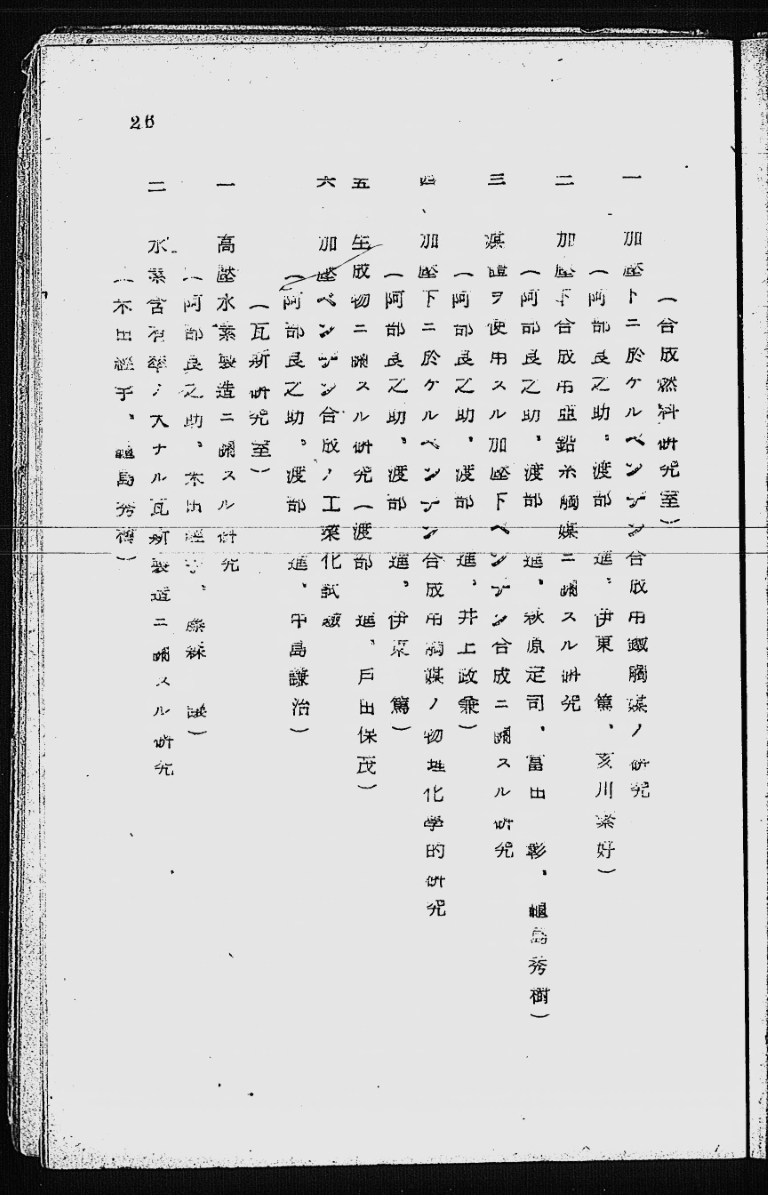 26
(合成燃料研究室)
一 加壓下ニ於ケルベンヂン合成用鐵觸媒ノ研究
(阿部良之助、渡部 進、伊東 篤、 川 好)
二 加壓下合成用亞鉛系觸媒ニ關スル研究
(阿部良之助、渡部 進、萩原定司、冨田 彰、 島秀樹)
三 溶 ヲ使用スル加壓下ベンヂン合成ニ關スル研究
(阿部良之助、渡部 進、井上政兼)
四、加壓下ニ於ケルベンヂン合成用觸媒ノ物理化學的研究
(阿部良之助、渡部 進、伊東 篤)
五 生成物ニ關スル研究(渡部 進、戶田保茂)
六 加壓ベンヂン合成ノ工業化試驗
(阿部良之助、渡部 進、中島謙治)
(瓦斯研究室)
一 高壓水素製造ニ關スル研究
(阿部良之助、木田 、藤森 )
二 水素含有率ノ大ナル瓦斯製造ニ關スル研究
(木田 、 島秀樹)